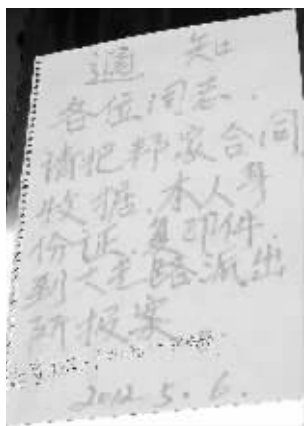 通 知
各位同志.
请把邦家合同
收据.本人身
份证.复印件.
到大毛路派出
所报案.
2012.5.6.